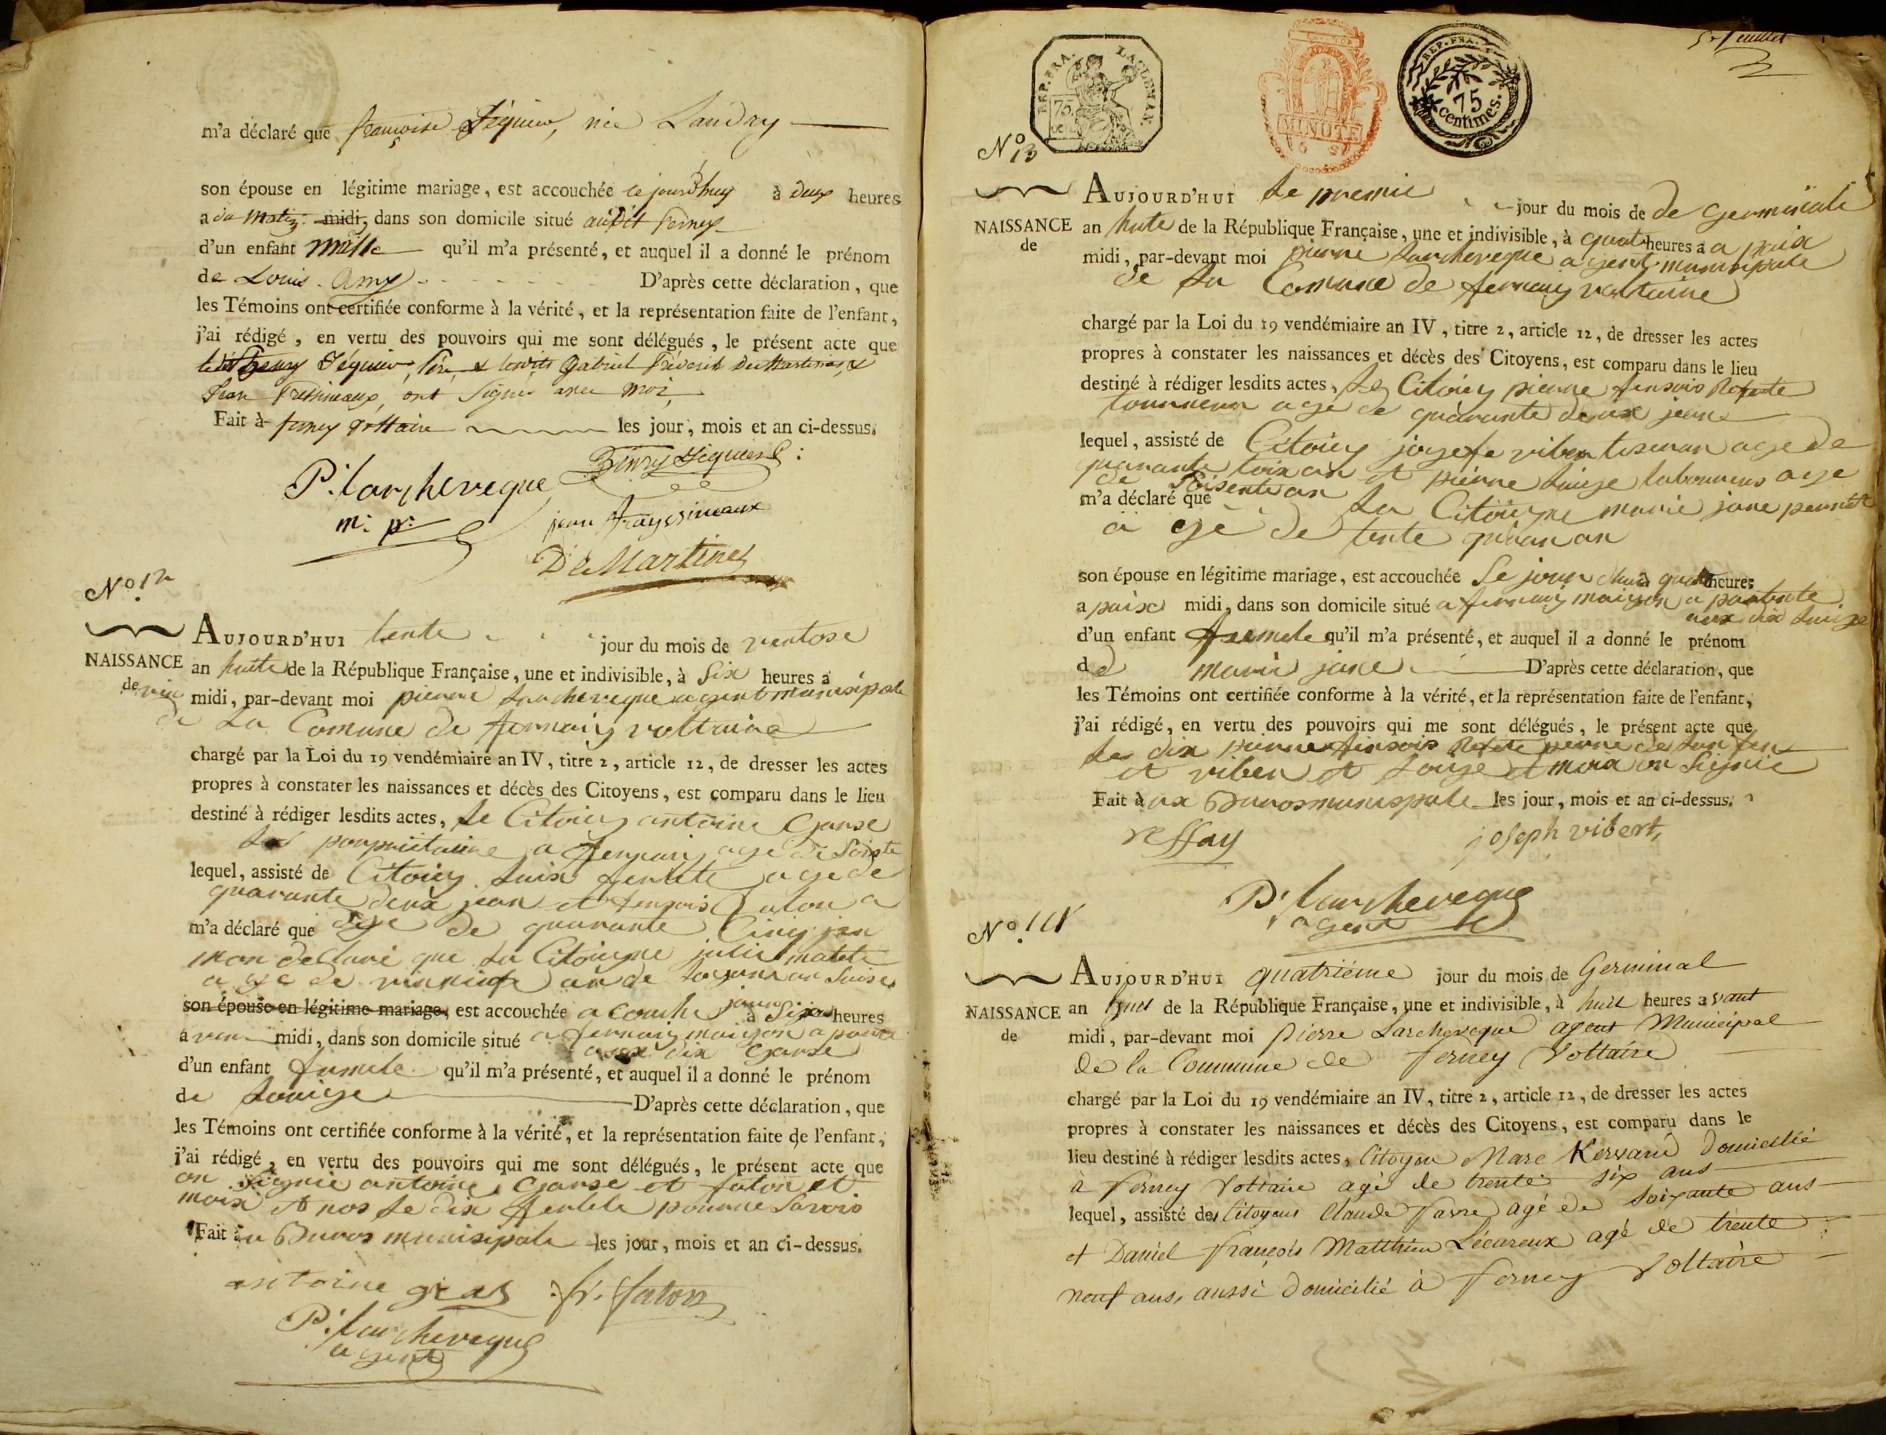 m'a déclaré que françoise Séquier, née Landry
son épouse en légitime mariage, est accouchée ce jourd'huy à deux heures
a du matin midi, dans son domicile situé audit ferney
d'un enfant mâle qu'il m'a présenté, et auquel il a donné le prénom
de Louis Amy D'après cette déclaration, que
les Témoins ont certifiée conforme à la vérité, et la représentation faite de l'enfant,
j'ai rédigé, en vertu des pouvoirs qui me sont délégués, le présent acte que
ledit henry Séquier, Père, & lesdits Gabriel Fréderik De Martines, &
Jean Fressineaux, ont signé avec moi,
Fait à ferney Voltaire les jour, mois et an ci-dessus.
Henry Séquier
P. larcheveque
m. pr.
jean frayssineaux
De Martines
No. 12
NAISSANCE
de
AUJOURD'HUI tente jour du mois de ventose
an huite de la République Française, une et indivisible, à Six heures a
midi, par-devant moi pierre Larcheveque agent munisipale
de La Comune de fernaiy voltaire
chargé par la Loi du 19 vendémiaire an IV, titre 2, article 12, de dresser les actes
propres à constater les naissances et décès des Citoyens, est comparu dans le lieu
destiné à rédiger lesdits actes, Le Citoiey antoine Garse
propriitaire a fernaiy age de Soiste
lequel, assisté de Citoiey Luix ferlete age de
quarante deux jean et fransois falon a
m'a déclaré que age de quarante Cinq jan
mon declaré que La Citoiyne julie matete
an de Losane an Suise
son épouse en légitime mariage, est accouchée a couche jour à Six heures
a midi, dans son domicile situé a fernaiy maison a parte
aux dix Garse
d'un enfant fumele qu'il m'a présenté, et auquel il a donné le prénom
de Louise D'après cette déclaration, que
les Témoins ont certifiée conforme à la vérité, et la représentation faite de l'enfant,
j'ai rédigé, en vertu des pouvoirs qui me sont délégués, le présent acte que
on Signié antoine Garse et falon et
moix et nos Le dix ferlete pour ne Savoir
Fait a Buros munisipale les jour, mois et an ci-dessus.
antoine gras fr. falon
P. larcheveque
agent
5e feuillet
REP. FRA. LACLEMAN.
75
MINUTE
REP. FRA.
75
centimes.
No 13
NAISSANCE
de
AUJOURD'HUI Le premie jour du mois de de Germinale
an huite de la République Française, une et indivisible, à quatre heures a a paix
midi, par-devant moi pierre Larcheveque agent munisipale
de La Comune de fernaiy voltaire
chargé par la Loi du 19 vendémiaire an IV, titre 2, article 12, de dresser les actes
propres à constater les naissances et décès des Citoyens, est comparu dans le lieu
destiné à rédiger lesdits actes, Le Citoiey pierre fransois
tourneur age de quarante deux jeans
lequel, assisté de Citoiey josefe viber tiseran age de
quarante toix an et pierre Luise laboureur age
de Soisente an
m'a déclaré que La Citoiyne marie jane
a gé de tente
son épouse en légitime mariage, est accouchée Le jour à quatre heures
a paix midi, dans son domicile situé a fernaiy maison a partente
aux dix Luise
d'un enfant femele qu'il m'a présenté, et auquel il a donné le prénom
de marie jane D'après cette déclaration, que
les Témoins ont certifiée conforme à la vérité, et la représentation faite de l'enfant,
j'ai rédigé, en vertu des pouvoirs qui me sont délégués, le présent acte que
Les dix pierre fransois perre de Lanfen
et viber et Louise et moix on Signié
Fait à ux Buros munisipale les jour, mois et an ci-dessus.
reffay joseph vibert,
P. larcheveque
agent
No. 14
NAISSANCE
de
AUJOURD'HUI quatriéme jour du mois de Germinal
an huit de la République Française, une et indivisible, à huit heures avant
midi, par-devant moi Pierre Larcheveque agent Municipal
de la Commune de ferney Voltaire
chargé par la Loi du 19 vendémiaire an IV, titre 2, article 12, de dresser les actes
propres à constater les naissances et décès des Citoyens, est comparu dans le
lieu destiné à rédiger lesdits actes, Citoyen Marc Kersard Domicilié
à ferney Voltaire agé de trente six ans
lequel, assisté des Citoyens Claude Favre agé de soixante ans
et Daniel françois Matthieu Lécureux agé de trente
neuf ans, aussi Domicilié à ferney Voltaire